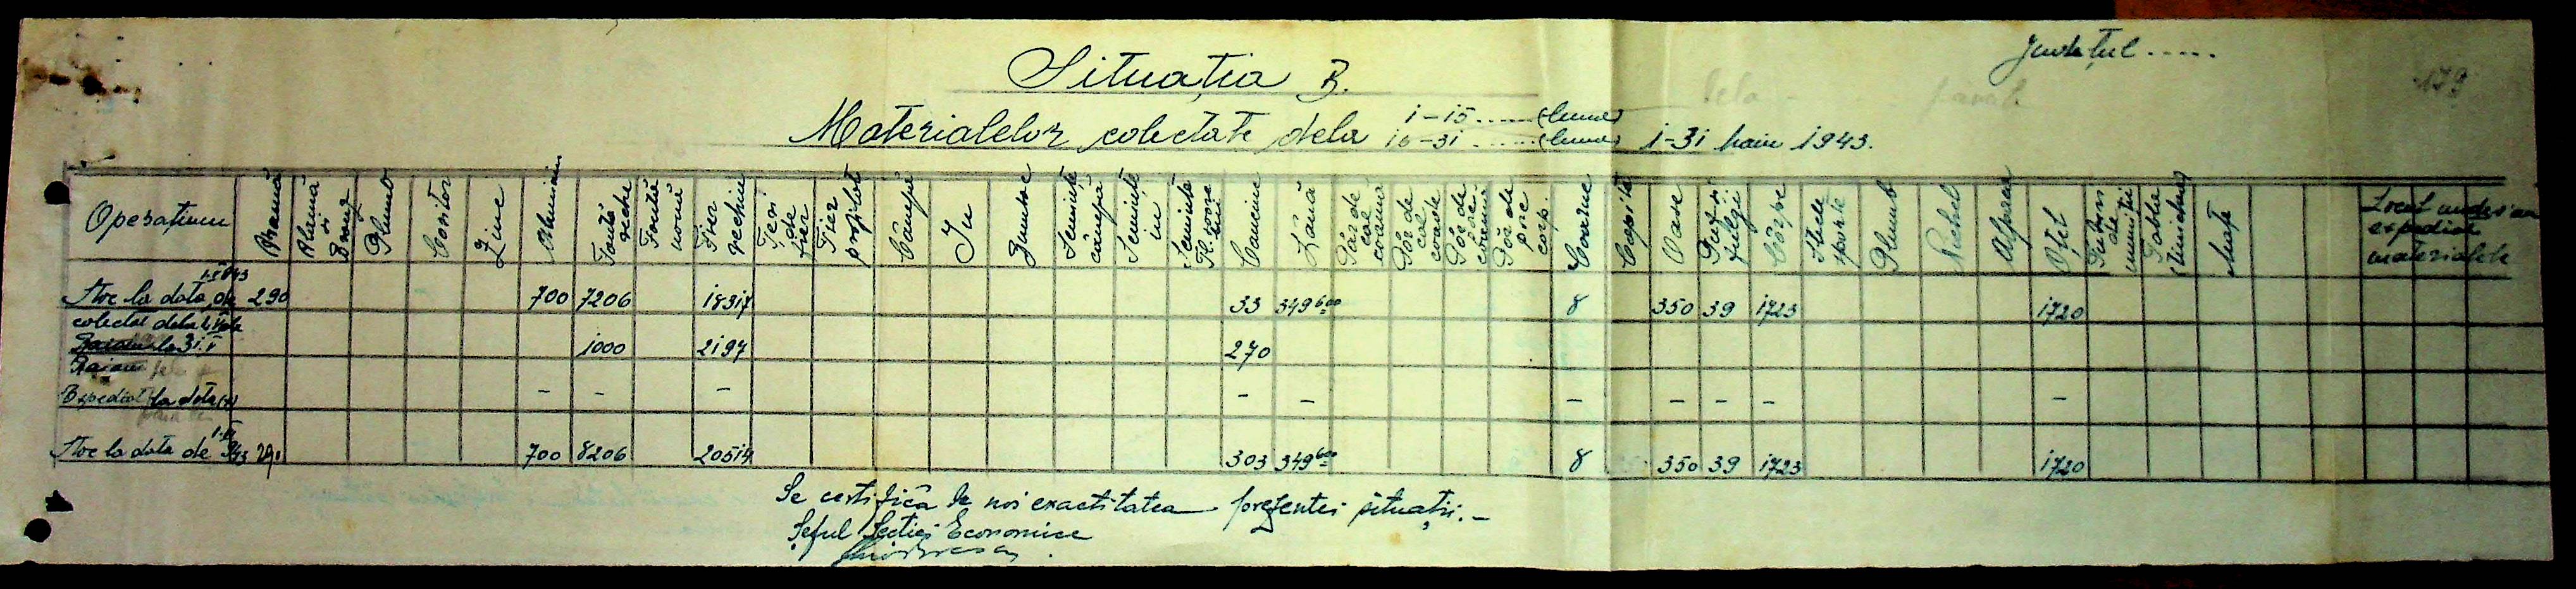 Județul .....
179
Situația B.
Materialelor colectate dela 1-15 ...... (lunei)
16-31 ...... (lunei) 1-31 Maiu 1943.
Operațiuni Aramă Alamă și Bronz Plumb Cositor Zinc Aluminiu Fontă veche Fontă nouă Fier vechiu Țevi de fier Fier profilat Cânepă In Bumbac Semințe cânepă Semințe in Semințe Cauciuc Lână Păr de cal coamă Păr de cal coade Păr de porc coamă Păr de porc corp. Coarne Copite Oase Puf și fulgi Cârpe Sticle sparte Plumb Nichel Alpaca Oțel Tuburi de muniții Tablă Locul unde s'au expediat materialele
Stoc la data de 290 700 7206 18317 33 349600 8 350 39 1723 1720
colectat dela
la 31.V 1000 2197 270
Raion
Expediat la data - - - - - - - - - -
Stoc la data de 290 700 8206 20514 303 349600 8 350 39 1723 1720
Se certifică de noi exactitatea prezentei situații.-
Șeful Secției Economice